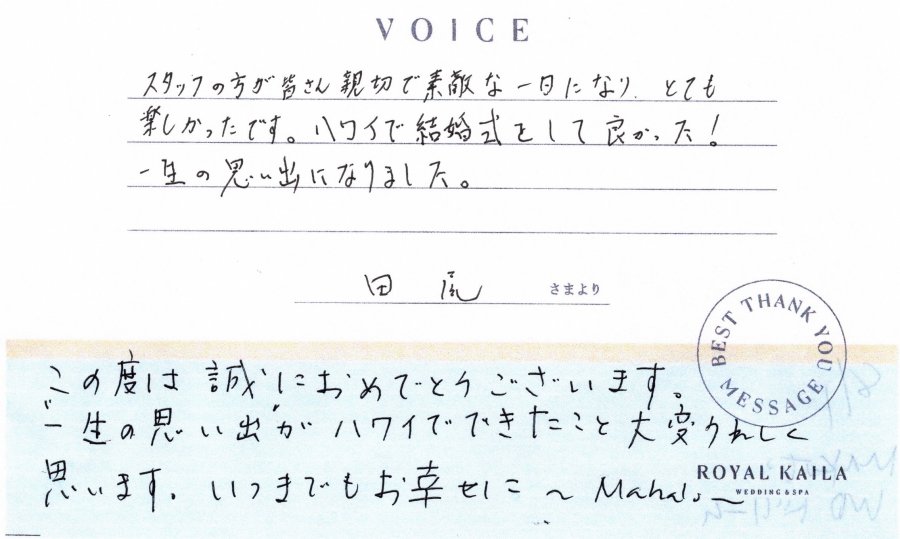 VOICE
スタッフの方が皆さん親切で素敵な一日になり、とても
楽しかったです。ハワイで結婚式をして良かった！
一生の思い出になりました。
田尾 さまより
BEST THANK YOU
MESSAGE
この度は誠におめでとうございます。
"一生の思い出"がハワイでできたこと大変うれしく
思います。いつまでもお幸せに 〜 Mahalo 〜
ROYAL KAILA
WEDDING & SPA